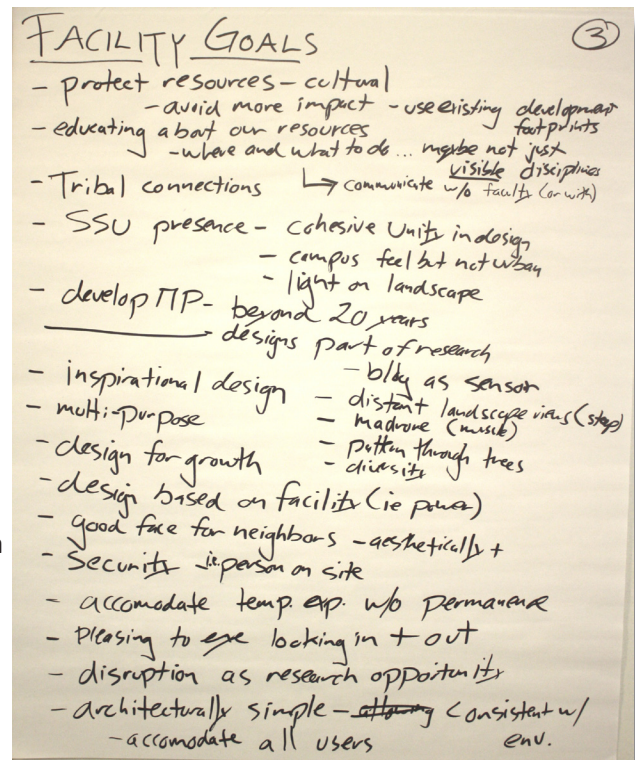 FACILITY GOALS
3
- protect resources - cultural
- avoid more impact - use existing development footprints
- educating about our resources
- where and what to do... maybe not just visible disciplines
- Tribal connections
↳ communicate w/o faculty (or with)
- SSU presence - cohesive Unity in design
- campus feel but not urban
- light on landscape
- develop MP - beyond 20 years
designs part of research
- bldg as sensor
- inspirational design
- distant landscape views (stop)
- multi-purpose
- madrone (music)
- path through trees
- design for growth
- diversity
- design based on facility (ie power)
- good face for neighbors - aesthetically +
- Security - i.e. person on site
- accomodate temp. exp. w/o permanence
- Pleasing to eye looking in + out
- disruption as research opportunity
- architecturally simple - allowing consistent w/ env.
- accomodate all users